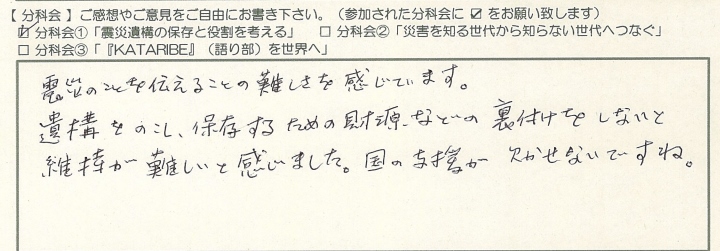 【 分科会 】ご感想やご意見をご自由にお書き下さい。（参加された分科会に ☑ をお願い致します）
☑ 分科会①「震災遺構の保存と役割を考える」 □ 分科会②「災害を知る世代から知らない世代へつなぐ」
□ 分科会③「『KATARIBE』（語り部）を世界へ」
震災のことを伝えることの難しさを感じています。
遺構をのこし、保存するための財源などの裏付けをしないと
維持が難しいと感じました。国の支援が欠かせないですね。